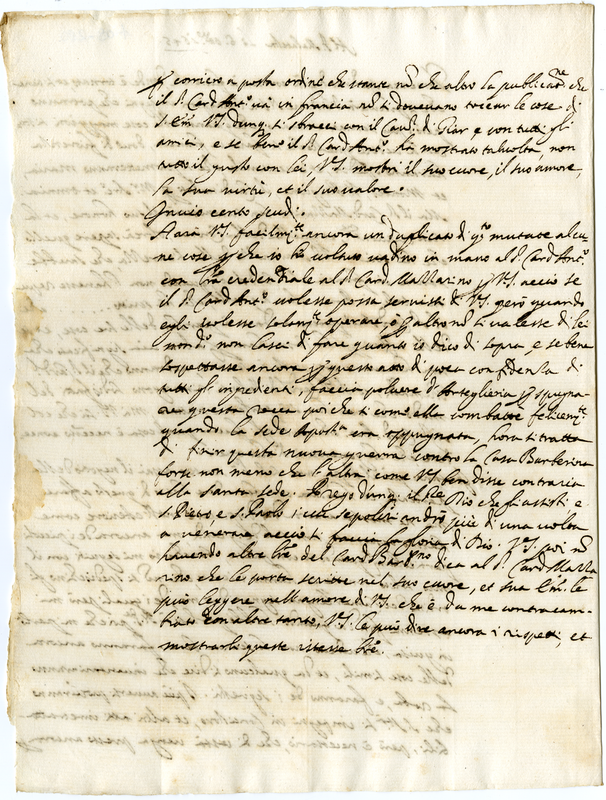 corriero a posta ordine che stante nō che altro la publicat.ne che
il S.r Card Ant.o uà in francia nō ti doueuano toccar le cose di
S. Em. V.S. dunq. si bracci con il Cau.r di Giar e con tutti gli
amici, e se bene il S.r Card Ant.o ha mostrato talvolta non
tutto il gusto con lei, V.S. mostri il suo cuore, il suo amore,
la sua virtù, et il suo valore.
Inuio cento scudi.
Aarà V.S. facilm.te ancora un duplicato di q.to mutate alcu-
ne cose che io ho uoluto uadino in mano al S. Card Ant.o
con lra credentiale al S.r Card. Mazzarino V.S. acciò se
il S.r Card Ant.o uolesse possa seruirsi di V.S. però quando
egli uolesse solam.te operare, altro nō si ualesse di lei
non lasci di fare quanto io dico di sopra, e se bene
sospettasse ancora questo atto di poca confidenza di
tutti gl' inpedienti, faccia poluere d'Arteglieria espugna-
re questa rocca poi che si come ella combattè felicem.te
quando la sede Apost.a era oppugnata, hora si tratta
di finir questa nuova guerra contro la Casa Barberina
forse non meno che l'altra come V.S. ben disse contraria
alla santa sede. Prego dunq. il S.re Dio che gli assisti e
S. Pietro e S. Paolo i cui sepolcri andrò più di una uolta
a venerare acciò ti faccia la gloria di Dio. V.S. poi nō
hauendo altre lre del Card Barb.no dica al S. Card Mazza
rino che le porta scritte nel suo cuore, et sua Em. le
può leggere nell'amore di V.S. che è da me contracam-
biato con altre tanto, V.S. le può dire ancora i rispetti, et
mostrarle queste istesse lre.